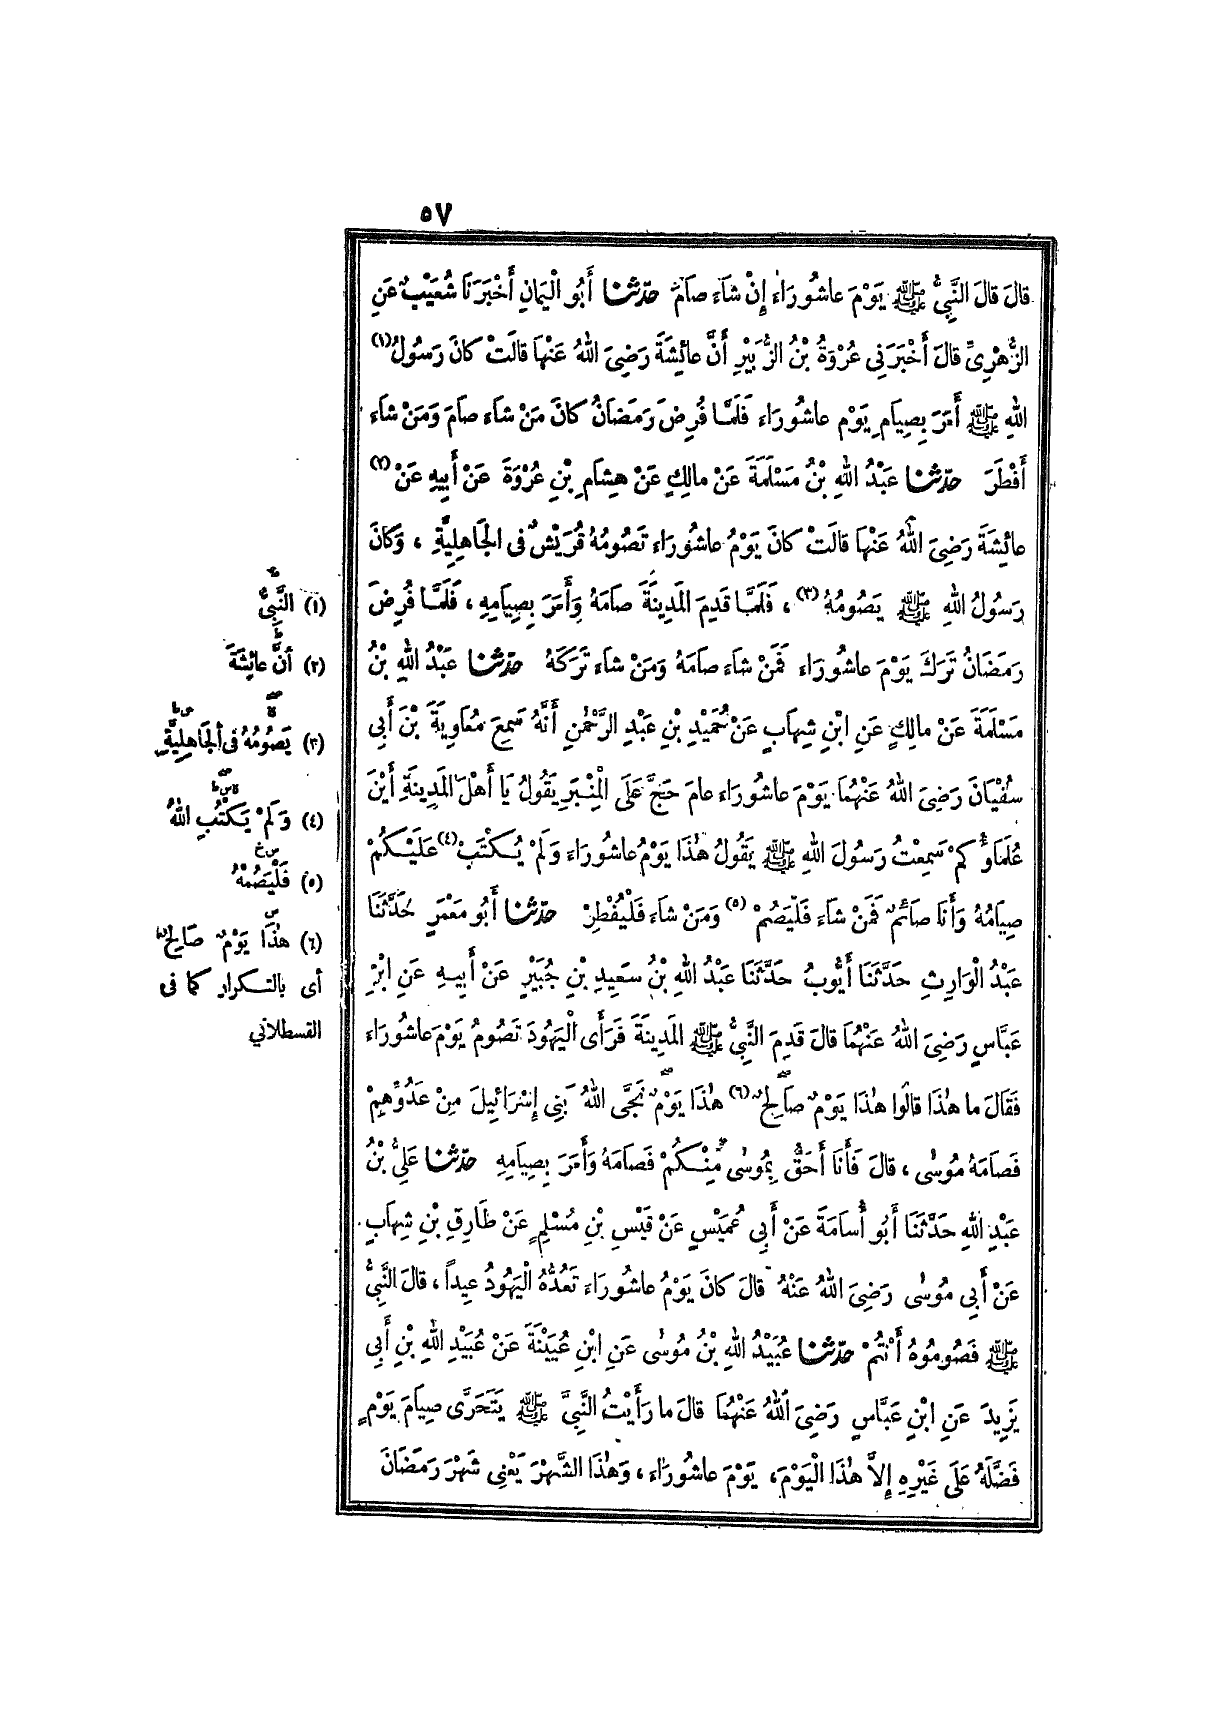 ٥٧
قالَ قالَ النَّبِيُّ ﷺ يَوْمَ عاشُورَاءَ إِنْ شاءَ صامَ حدّثنا أَبُو الْيَمانِ أَخْبَرَنَا شُعَيْبٌ عَنِ
الزُّهْرِيِّ قالَ أَخْبَرَنِي عُرْوَةُ بْنُ الزُّبَيْرِ أَنَّ عائِشَةَ رَضِيَ اللهُ عَنْهَا قالَتْ كانَ رَسُولُ (١)
اللهِ ﷺ أَمَرَ بِصِيَامِ يَوْمِ عاشُورَاءَ فَلَمَّا فُرِضَ رَمَضَانُ كانَ مَنْ شاءَ صامَ وَمَنْ شاءَ
أَفْطَرَ حدّثنا عَبْدُ اللهِ بْنُ مَسْلَمَةَ عَنْ مالِكٍ عَنْ هِشَامِ بْنِ عُرْوَةَ عَنْ أَبِيهِ عَنْ (٢)
عائِشَةَ رَضِيَ اللهُ عَنْهَا قالَتْ كانَ يَوْمُ عاشُورَاءَ تَصُومُهُ قُرَيْشٌ فى الجَاهِلِيَّةِ ، وَكانَ
رَسُولُ اللهِ ﷺ يَصُومُهُ (٣) ، فَلَمَّا قَدِمَ المَدِينَةَ صامَهُ وَأَمَرَ بِصِيَامِهِ ، فَلَمَّا فُرِضَ
رَمَضَانُ تَرَكَ يَوْمَ عاشُورَاءَ فَمَنْ شاءَ صامَهُ وَمَنْ شاءَ تَرَكَهُ حدّثنا عَبْدُ اللهِ بْنُ
مَسْلَمَةَ عَنْ مالِكٍ عَنِ ابْنِ شِهَابٍ عَنْ حُمَيْدِ بْنِ عَبْدِ الرَّحْمٰنِ أَنَّهُ سَمِعَ مُعَاوِيَةَ بْنَ أَبِي
سُفْيَانَ رَضِيَ اللهُ عَنْهُمَا يَوْمَ عاشُورَاءَ عامَ حَجَّ عَلَى الْمِنْبَرِ يَقُولُ يَا أَهْلَ المَدِينَةِ أَيْنَ
عُلَمَاؤُكُمْ سَمِعْتُ رَسُولَ اللهِ ﷺ يَقُولُ هٰذَا يَوْمُ عاشُورَاءَ وَلَمْ يُكْتَبْ (٤) عَلَيْكُمْ
صِيَامُهُ وَأَنَا صائِمٌ فَمَنْ شاءَ فَلْيَصُمْ (٥) وَمَنْ شاءَ فَلْيُفْطِرْ حدّثنا أَبُو مَعْمَرٍ حَدَّثَنَا
عَبْدُ الْوَارِثِ حَدَّثَنَا أَيُّوبُ حَدَّثَنَا عَبْدُ اللهِ بْنُ سَعِيدِ بْنِ جُبَيْرٍ عَنْ أَبِيهِ عَنِ ابْنِ
عَبَّاسٍ رَضِيَ اللهُ عَنْهُمَا قالَ قَدِمَ النَّبِيُّ ﷺ المَدِينَةَ فَرَأَى الْيَهُودَ تَصُومُ يَوْمَ عاشُورَاءَ
فَقَالَ ما هٰذَا قالُوا هٰذَا يَوْمٌ صَالِحٌ (٦) هٰذَا يَوْمٌ نَجَّى اللهُ بَنِي إِسْرَائِيلَ مِنْ عَدُوِّهِمْ
فَصَامَهُ مُوسٰى ، قالَ فَأَنَا أَحَقُّ بِمُوسٰى مِنْكُمْ فَصَامَهُ وَأَمَرَ بِصِيَامِهِ حدّثنا عَلِيُّ بْنُ
عَبْدِ اللهِ حَدَّثَنَا أَبُو أُسَامَةَ عَنْ أَبِي عُمَيْسٍ عَنْ قَيْسِ بْنِ مُسْلِمٍ عَنْ طَارِقِ بْنِ شِهَابٍ
عَنْ أَبِي مُوسٰى رَضِيَ اللهُ عَنْهُ قالَ كانَ يَوْمُ عاشُورَاءَ تَعُدُّهُ الْيَهُودُ عِيداً ، قالَ النَّبِيُّ
ﷺ فَصُومُوهُ أَنْتُمْ حدّثنا عُبَيْدُ اللهِ بْنُ مُوسٰى عَنِ ابْنِ عُيَيْنَةَ عَنْ عُبَيْدِ اللهِ بْنِ أَبِي
يَزِيدَ عَنِ ابْنِ عَبَّاسٍ رَضِيَ اللهُ عَنْهُمَا قالَ ما رَأَيْتُ النَّبِيَّ ﷺ يَتَحَرَّى صِيَامَ يَوْمٍ
فَضَّلَهُ عَلَى غَيْرِهِ إِلاَّ هٰذَا الْيَوْمَ، يَوْمَ عاشُورَاءَ ، وَهٰذَا الشَّهْرَ يَعْنِي شَهْرَ رَمَضَانَ
(١) النَّبِيُّ
(٢) أنَّ عائِشَةَ
(٣) يَصُومُهُ فى الجَاهِلِيَّةِ
(٤) وَلَمْ يَكْتُبِ اللهُ
(٥) فَلْيَصُمْهُ
(٦) هٰذَا يَوْمٌ صَالِحٌ
أى بالتكرار كما فى
القسطلاني